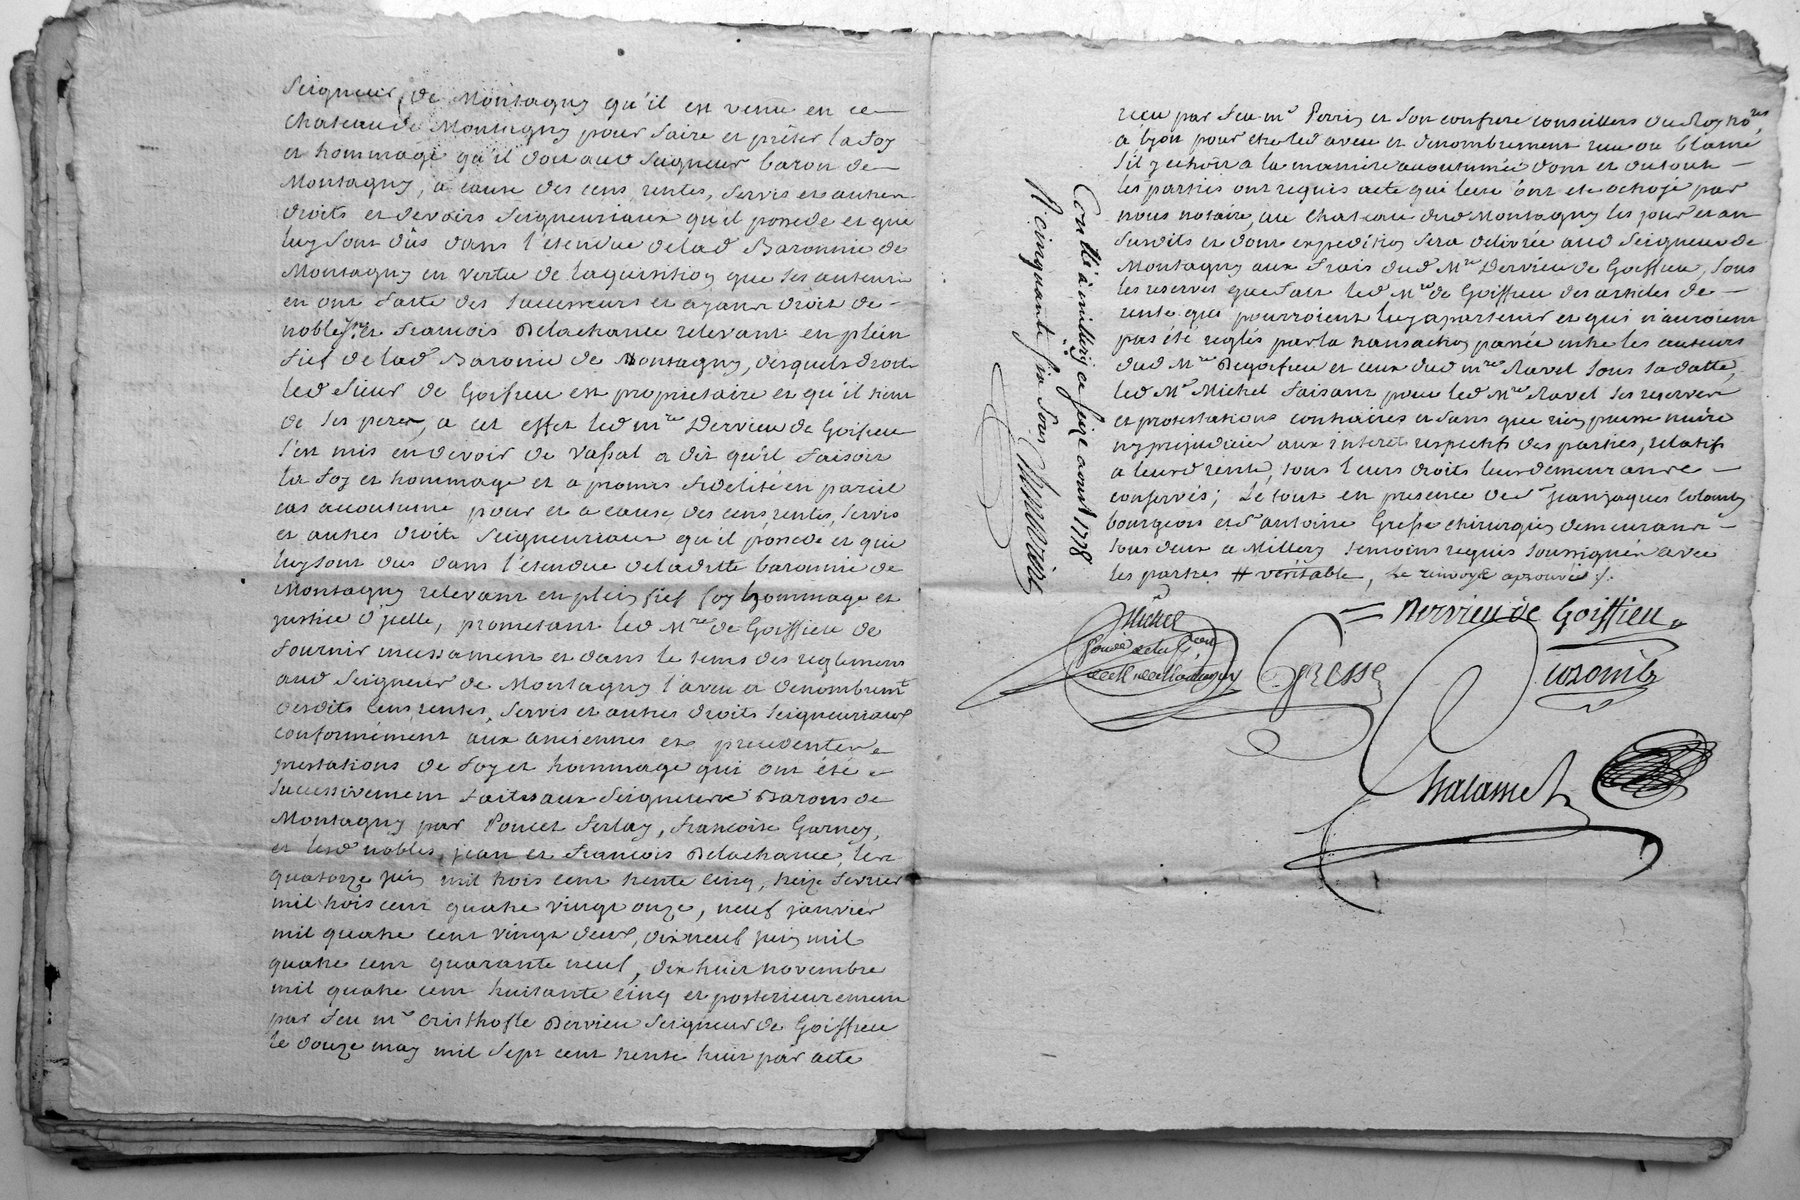 Seigneur de Montagny qu'il est venu en ce
chateau de Montagny pour faire et prêter la foy
et hommage qu'il doit aud Seigneur baron de
Montagny, a cause des cens, rentes, servis et autres
droits et devoirs Seigneuriaux qu'il possede et qui
luy sont dûs dans l'etendue de lad Baronnie de
Montagny en vertu de l'aquisition que ses auteurs
en ont faite des successeurs et ayant droit de
noble et francois Delachance relevant en plein
fief de lad Baronie de Montagny, desquels droits
led Sieur de Goiffieu est proprietaire et qu'il tient
de ses peres, a cet effet led mre Dervieu de Goiffieu
s'est mis en devoir de vassal a dit qu'il faisoit
la foy et hommage et a promis fidelité en pareil
cas accoutumé pour et a cause des cens, rentes, servis
et autres droits Seigneuriaux qu'il possede et qui
luy sont dus dans l'etendue de laditte baronnie de
Montagny relevant en plein fief foy hommage et
justice d'icelle, prometant led Mre de Goiffieu de
fournir incessament et dans le tems des reglemens
aud Seigneur de Montagny l'aveu et denombremt
desdits cens, rentes, servis et autres droits Seigneuriaux
conformément aux anciennes et precedentes
prestations de foy et hommage qui ont été
successivement faites aux Seigneurs Barons de
Montagny par Poncet ferlay, francoise Garney,
et lesd nobles jean et francois Delachance, les
quatorze juin mil trois cent trente cinq, treize fevrier
mil trois cent quatre vingt onze, neuf janvier
mil quatre cent vingt deux, dix neuf juin mil
quatre cent quarante neuf, dix huit novembre
mil quatre cent huitante cinq et posterieurement
par feu mre Cristhofle Dervieu Seigneur de Goiffieu
le douze may mil sept cent trente huit par acte
recu par feu me Perrin et son confrere conseillers du Roy nores
a lyon pour etre led aveu et denombrement recu ou blamé
s'il y echoit a la maniere accoutumée dont et du tout
les parties ont requis acte qui leur ont eté octroyé par
nous notaire, au chateau dud Montagny les jour et an
susdits et dont expedition sera delivrée aud Seigneur de
Montagny aux frais dud Mre Dervieu de Goiffieu, sous
les reserves que fait led Mre de Goiffieu des articles de
rente qui pourroient luy apartenir et qui n'auroient
pas été reglés par la transaction passée entre les auteurs
dud Mre Degoiffieu et ceux dud mre Ravel sous sa datte,
led Me Michel faisant pour led Mre Ravel ses reserves
et protestations contraires et sans que rien puisse nuire
ny prejudicier aux interet respectifs des parties, relatifs
a leurd rente, tous leurs droits leur demeurant
conservés; Le tout en presence de Sr jean jaques Colomb
bourgeois et Sr antoine Gresse chirurgien demeurant
tous deux a Millery temoins requis soussignés avec
les parties # veritable, Le renvoye aprouvé
Contlé à millery ce seize aoust 1778
R cinquante six sols
Michel
Dervieu de Goiffieu
Gresse
Colomb
Chalamel